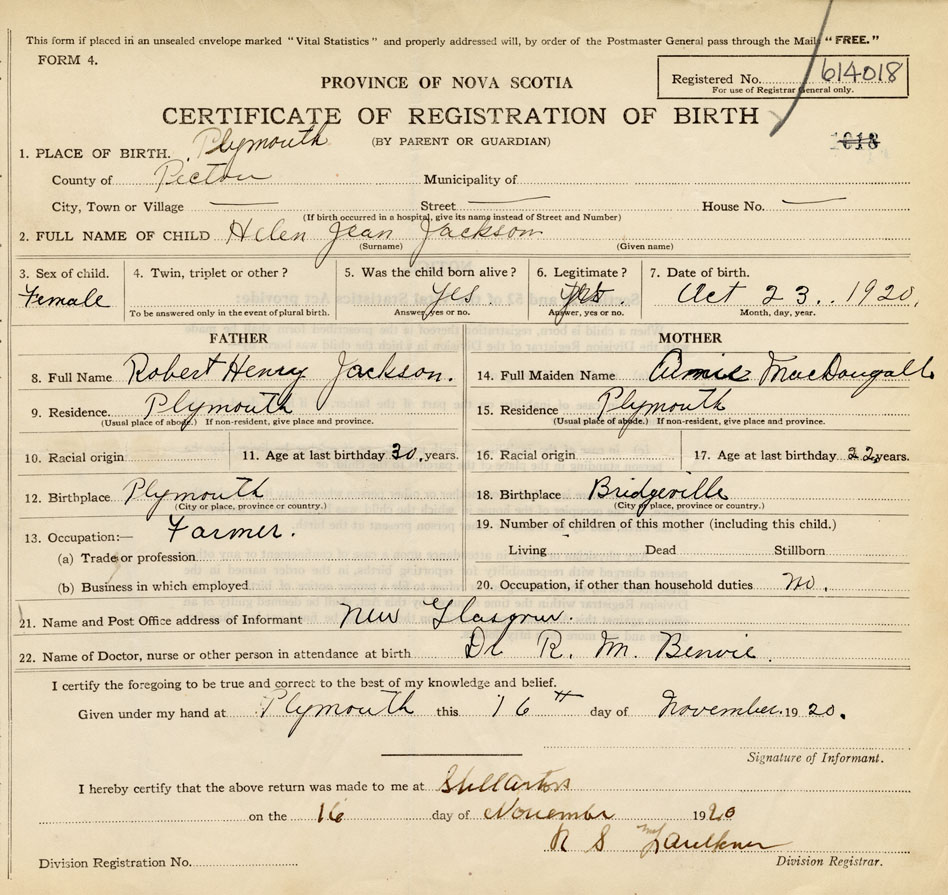 This form if placed in an unsealed envelope marked "Vital Statistics" and properly addressed will, by order of the Postmaster General pass through the Mails "FREE."
FORM 4.
Registered No. 614018
For use of Registrar General only.
PROVINCE OF NOVA SCOTIA
CERTIFICATE OF REGISTRATION OF BIRTH
(BY PARENT OR GUARDIAN)
1. PLACE OF BIRTH. Plymouth
County of Pictou Municipality of
City, Town or Village — Street — House No. —
(If birth occurred in a hospital, give its name instead of Street and Number)
2. FULL NAME OF CHILD Helen Jean Jackson
(Surname) (Given name)
3. Sex of child. 4. Twin, triplet or other? 5. Was the child born alive? 6. Legitimate? 7. Date of birth.
Female Yes Yes Oct 23. 1920.
To be answered only in the event of plural birth. Answer, yes or no. Answer, yes or no. Month, day, year.
FATHER MOTHER
8. Full Name Robert Henry Jackson. 14. Full Maiden Name MacDougall
9. Residence. Plymouth 15. Residence Plymouth
(Usual place of abode.) If non-resident, give place and province. (Usual place of abode.) If non-resident, give place and province.
10. Racial origin 11. Age at last birthday 30. years. 16. Racial origin 17. Age at last birthday 22. years.
12. Birthplace Plymouth 18. Birthplace Bridgeville
(City or place, province or country.) (City or place, province or country.)
13. Occupation:— Farmer. 19. Number of children of this mother (including this child.)
(a) Trade or profession Living Dead Stillborn
(b) Business in which employed 20. Occupation, if other than household duties no.
21. Name and Post Office address of Informant New Glasgow.
22. Name of Doctor, nurse or other person in attendance at birth Dr R. M. Benvie.
I certify the foregoing to be true and correct to the best of my knowledge and belief.
Given under my hand at Plymouth this 16th day of November. 1920.
Signature of Informant.
I hereby certify that the above return was made to me at Stellarton
on the 16 day of November 1920
R S McFaulkner
Division Registration No. Division Registrar.